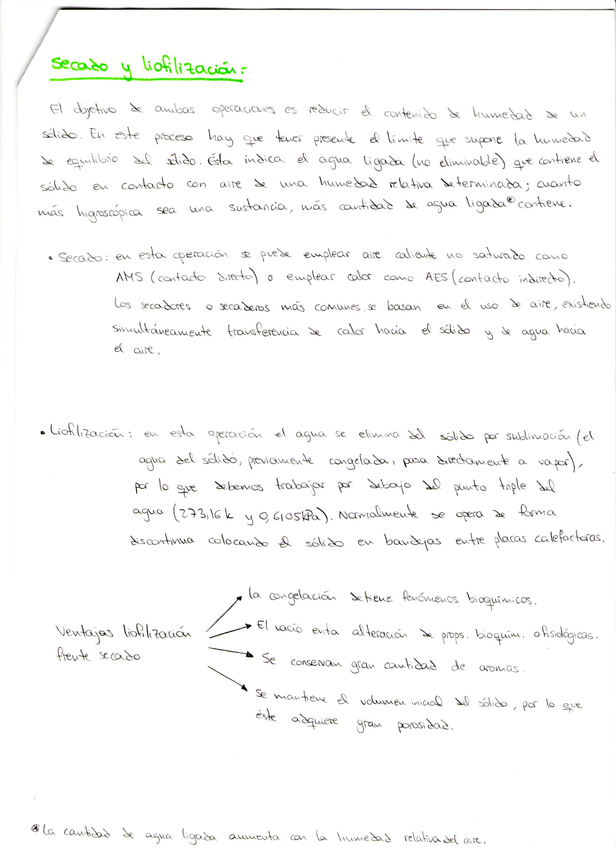 Secado y liofilización:
El objetivo de ambas operaciones es reducir el contenido de humedad de un
sólido. En este proceso hay que tener presente el límite que supone la humedad
de equilibrio del sólido. Ésta indica el agua ligada (no eliminable) que contiene el
sólido en contacto con aire de una humedad relativa determinada; cuanto
más higroscópica sea una sustancia, más cantidad de agua ligada* contiene.
• Secado: en esta operación se puede emplear aire caliente no saturado como
AMS (contacto directo) o emplear calor como AES (contacto indirecto).
Los secadores o secaderos más comunes se basan en el uso de aire, existiendo
simultáneamente transferencia de calor hacia el sólido y de agua hacia
el aire.
• Liofilización: en esta operación el agua se elimina del sólido por sublimación (el
agua del sólido, previamente congelada, pasa directamente a vapor),
por lo que debemos trabajar por debajo del punto triple del
agua (273,16 k y 0,6105 kPa). Normalmente se opera de forma
discontinua colocando el sólido en bandejas entre placas calefactoras.
Ventajas liofilización
frente secado
La congelación detiene fenómenos bioquímicos.
El vacío evita alteración de props. bioquím. o fisiológicas.
Se conservan gran cantidad de aromas.
Se mantiene el volumen inicial del sólido, por lo que
éste adquiere gran porosidad.
* La cantidad de agua ligada aumenta con la humedad relativa del aire.